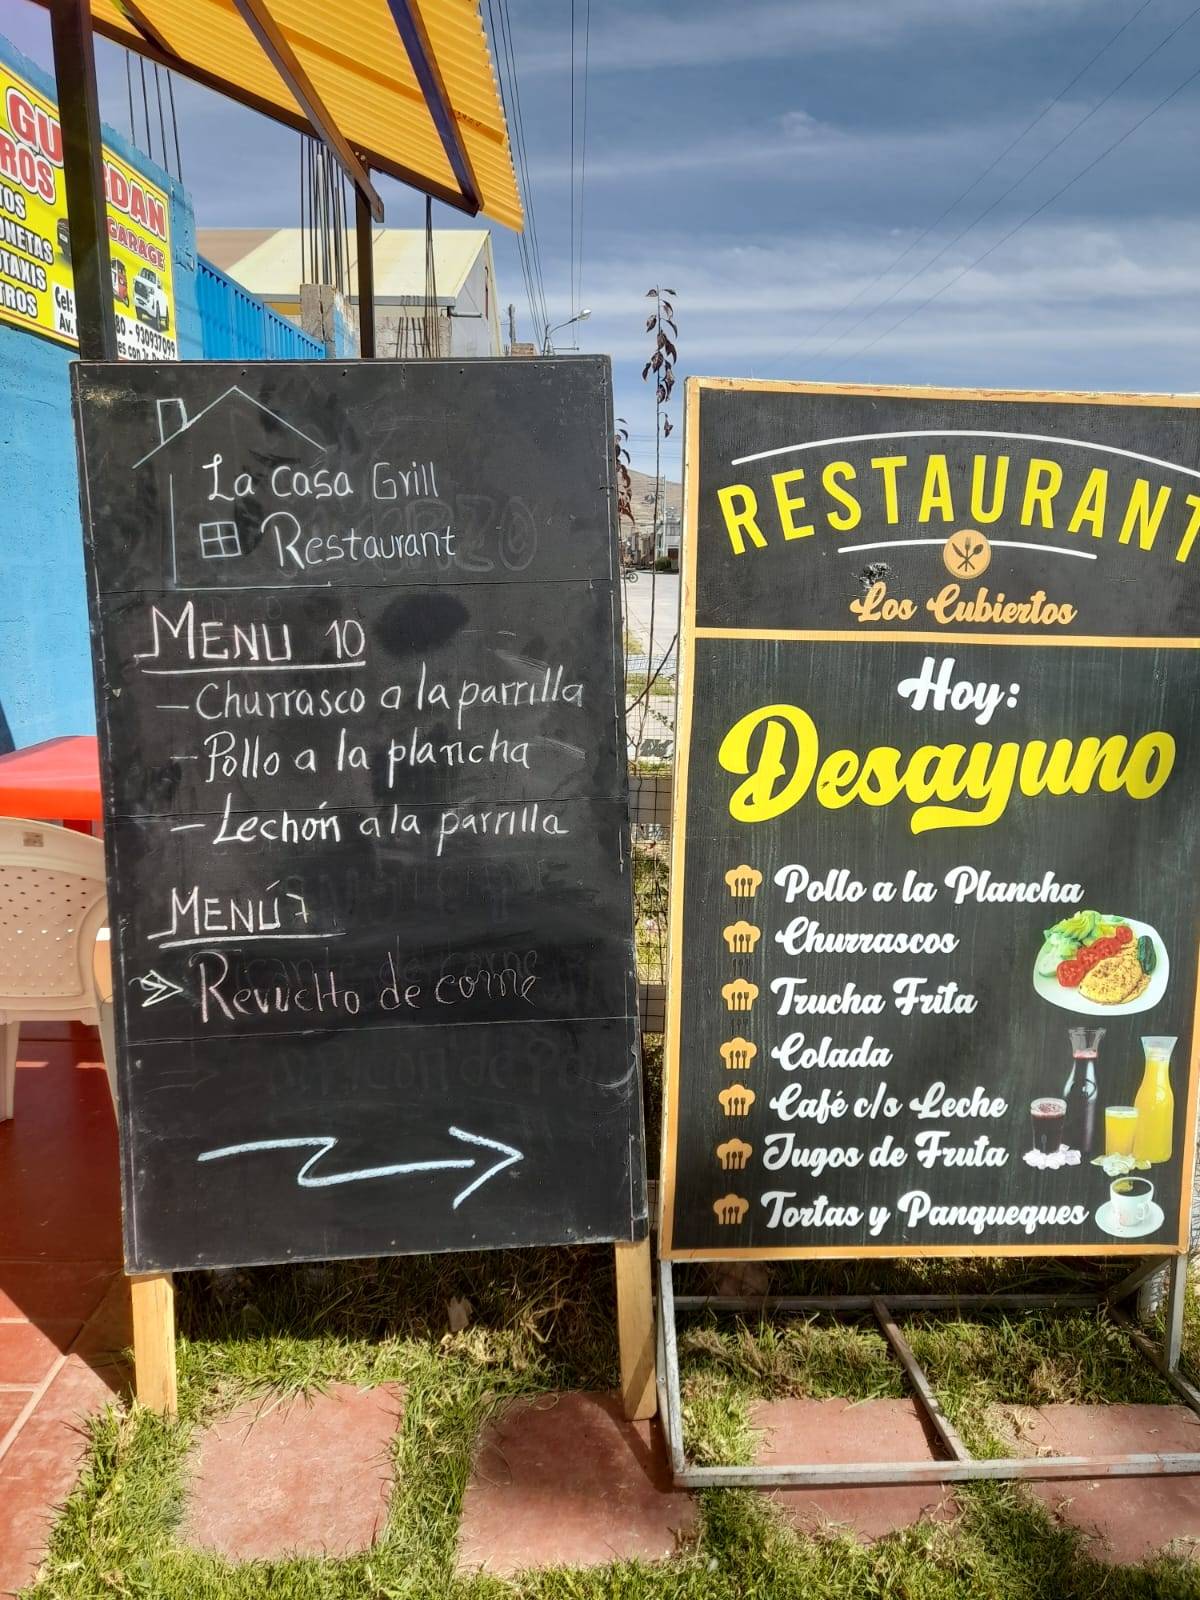 GU RDAN
ROS
GARAGE
TOS
ONETAS
OTAXIS
TROS
Cel:
80 - 930937099
Av.
La Casa Grill
Restaurant
MENU 10
- Churrasco a la parrilla
- Pollo a la plancha
- Lechón a la parrilla
MENÚ 7
Revuelto de carne
RESTAURANT
Los Cubiertos
Hoy:
Desayuno
Pollo a la Plancha
Churrascos
Trucha Frita
Colada
Café c/s Leche
Jugos de Fruta
Tortas y Panqueques